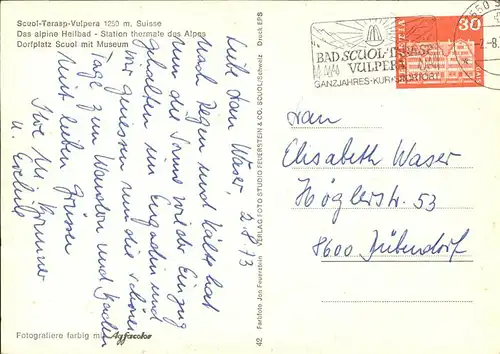 Scuol-Tarasp-Vulpera 1250 m, Suisse
Das alpine Heilbad - Station thermale des Alpes
Dorfplatz Scuol mit Museum
Liebe Frau Waser, 2.8.73
Nach Regen und Kälte hat
nun die Sonne wieder Einzug
gehalten im Engadin und
wir geniessen nun die schönen
Tage zum Wandern und Baden
Mit lieben Grüssen
Ihre
u.
Fotografiere farbig mit Agfacolor
42 Farbfoto Jon Feuerstein VERLAG FOTO STUDIO FEUERSTEIN & CO. SCUOL/Schweiz Druck EPS
BAD SCUOL-TARASP
VULPERA
GANZJAHRES-KUR+SPORTORT
HELVETIA
30
Frau
Elisabeth Waser
Höglerstr. 53
8600 Dübendorf